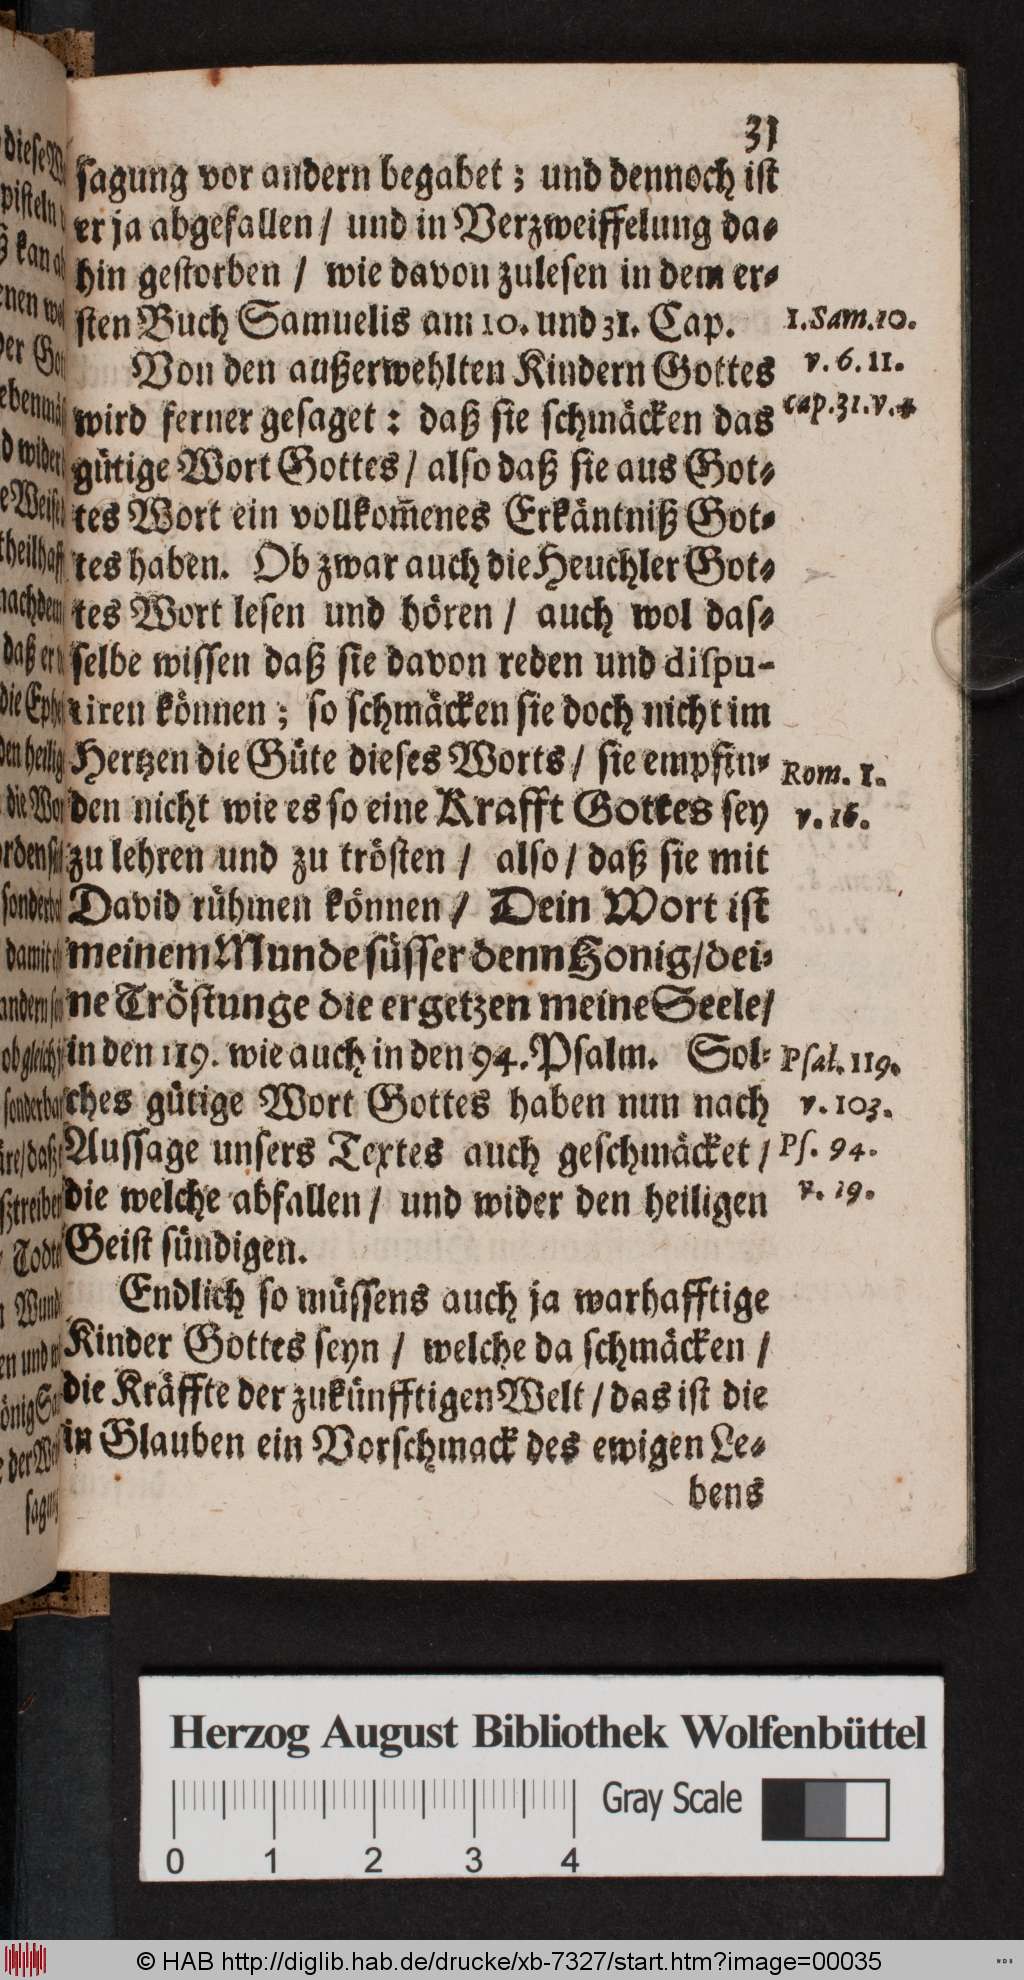 31
sagung vor andern begabet; und dennoch ist
er ja abgefallen/ und in Verzweiffelung da-
hin gestorben / wie davon zulesen in dem er-
sten Buch Samuelis am 10. und 31. Cap.
1. Sam. 10.
v. 6. 11.
cap. 31. v. 4
Von den außerwehlten Kindern Gottes
wird ferner gesaget: daß sie schmäcken das
gütige Wort Gottes/ also daß sie aus Got-
tes Wort ein vollkom̃enes Erkäntniß Got-
tes haben. Ob zwar auch die Heuchler Got-
tes Wort lesen und hören / auch wol das-
selbe wissen daß sie davon reden und dispu-
tiren können; so schmäcken sie doch nicht im
Hertzen die Güte dieses Worts/ sie empfin-
den nicht wie es so eine Krafft Gottes sey
Rom. 1.
v. 16.
zu lehren und zu trösten / also/ daß sie mit
David rühmen können/ Dein Wort ist
meinem Munde süsser denn Honig/dei-
ne Tröstunge die ergetzen meine Seele/
in den 119. wie auch in den 94. Psalm. Sol-
ches gütige Wort Gottes haben nun nach
Aussage unsers Textes auch geschmäcket /
die welche abfallen/ und wider den heiligen
Geist sündigen.
Psal. 119.
v. 103.
Ps. 94.
v. 19.
Endlich so müssens auch ja warhafftige
Kinder Gottes seyn / welche da schmäcken /
die Kräffte der zukünfftigen Welt/das ist die
in Glauben ein Vorschmack des ewigen Le-
bens
Herzog August Bibliothek Wolfenbüttel
Gray Scale
0 1 2 3 4
© HAB http://diglib.hab.de/drucke/xb-7327/start.htm?image=00035